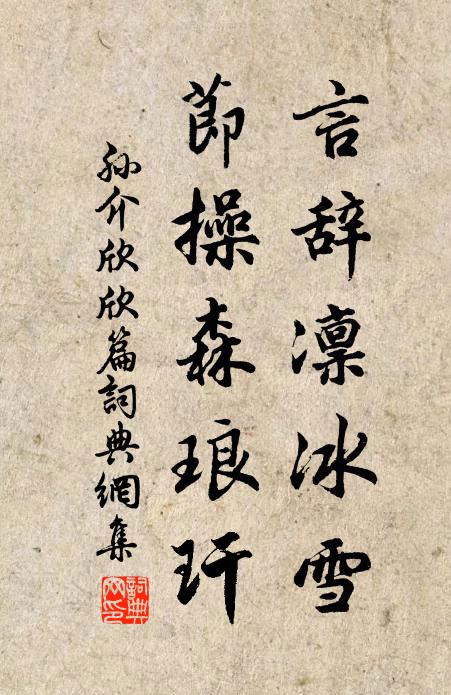 言辞凛冰雪
節操森琅玕
孙介欣欣篇詞典網集
詞典網印